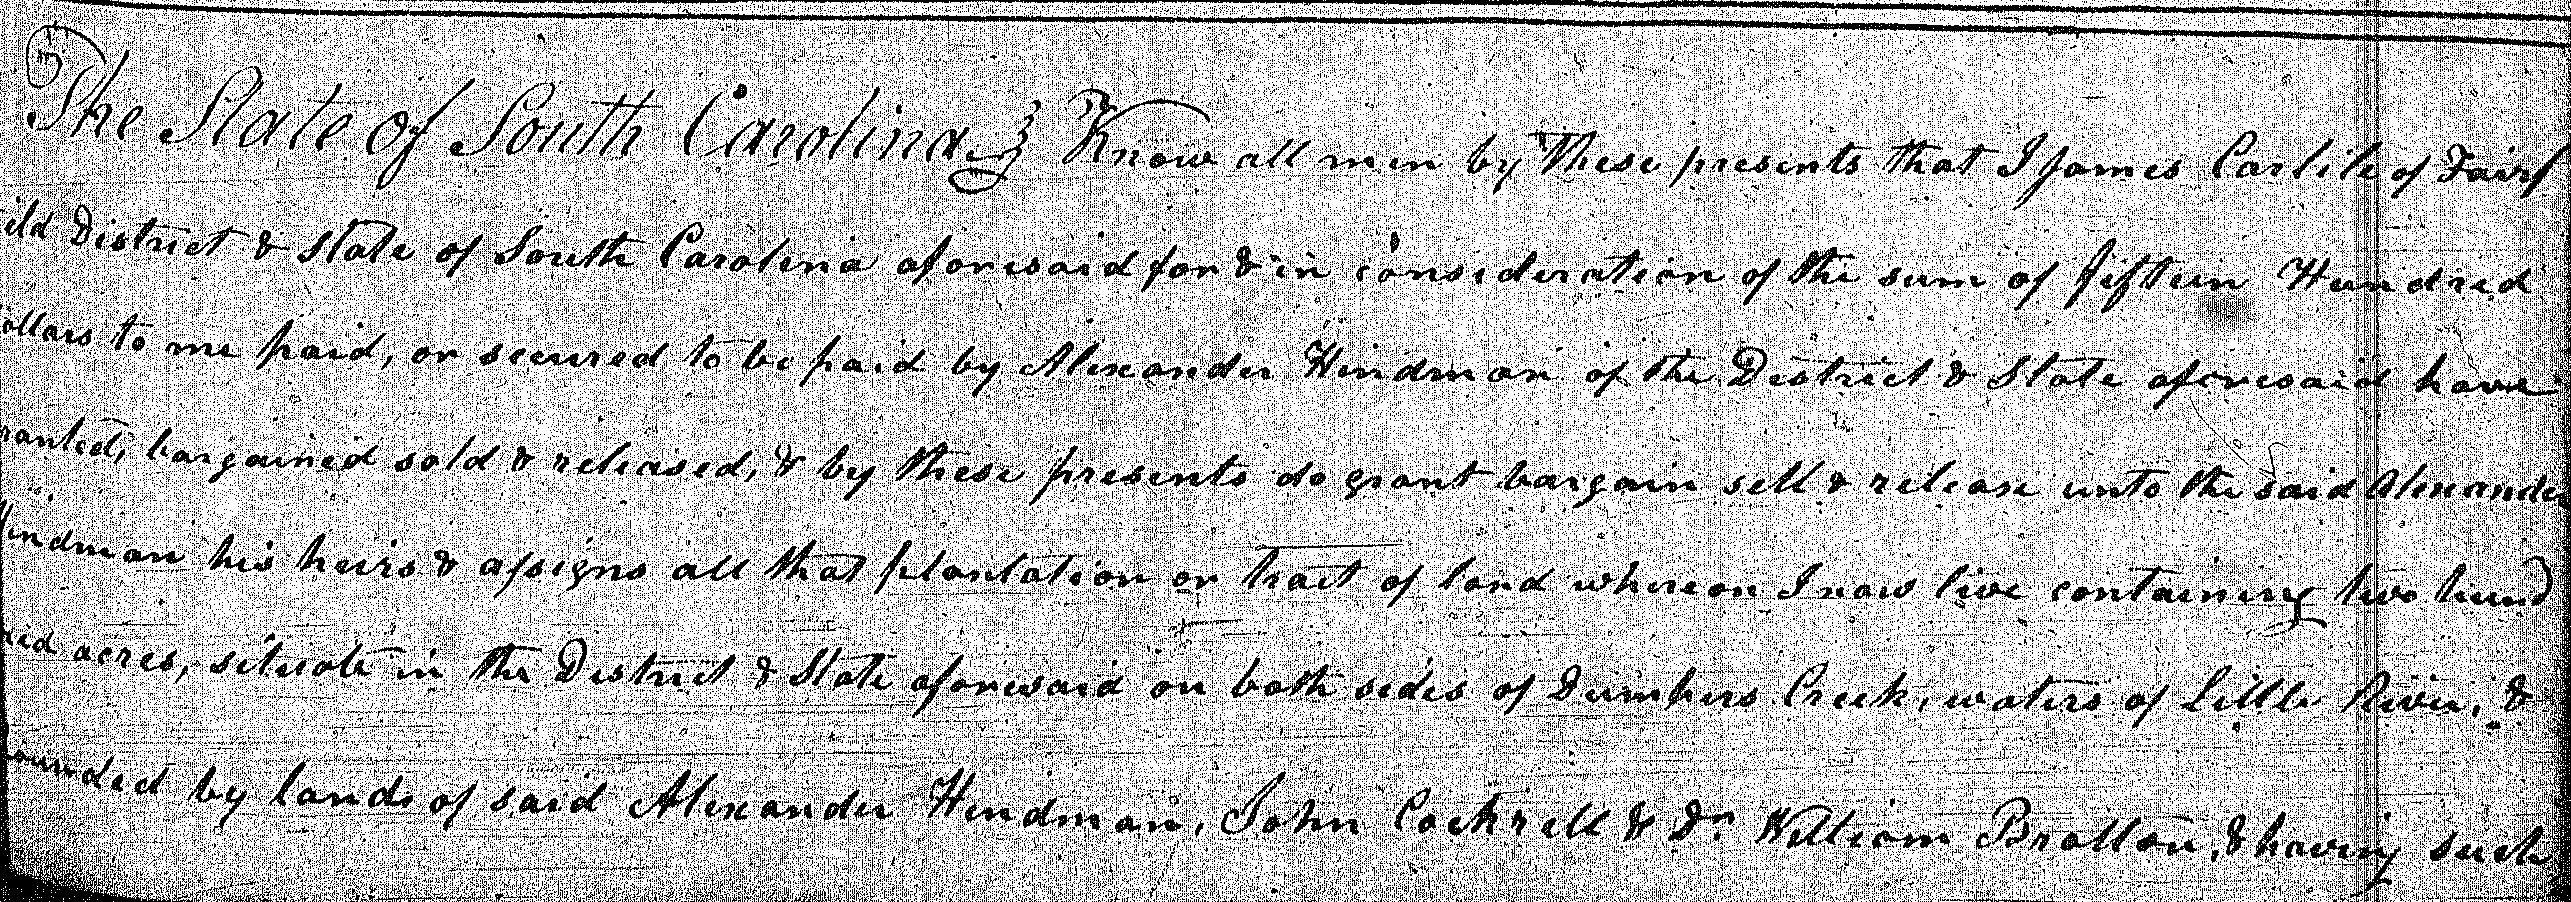 The State of South Carolina } Know all men by these presents that I James Carlile of Fairf
ild District & State of South Carolina aforesaid for & in consideration of the sum of fifteen Hundred
ollars to me paid, or secured to be paid by Alexander Hindman of the District & State aforesaid have
ranted, bargained sold & released, & by these presents do grant bargain sell & release unto the said Alexander
Hindman his heirs & assigns all that plantation or tract of land whereon I now live containing two hund
red acres, situate in the District & State aforesaid on both sides of Dumpers Creek, waters of Little River, &
ounded by lands of said Alexander Hindman, John Cockrell & Dr. William Bratton, & having such